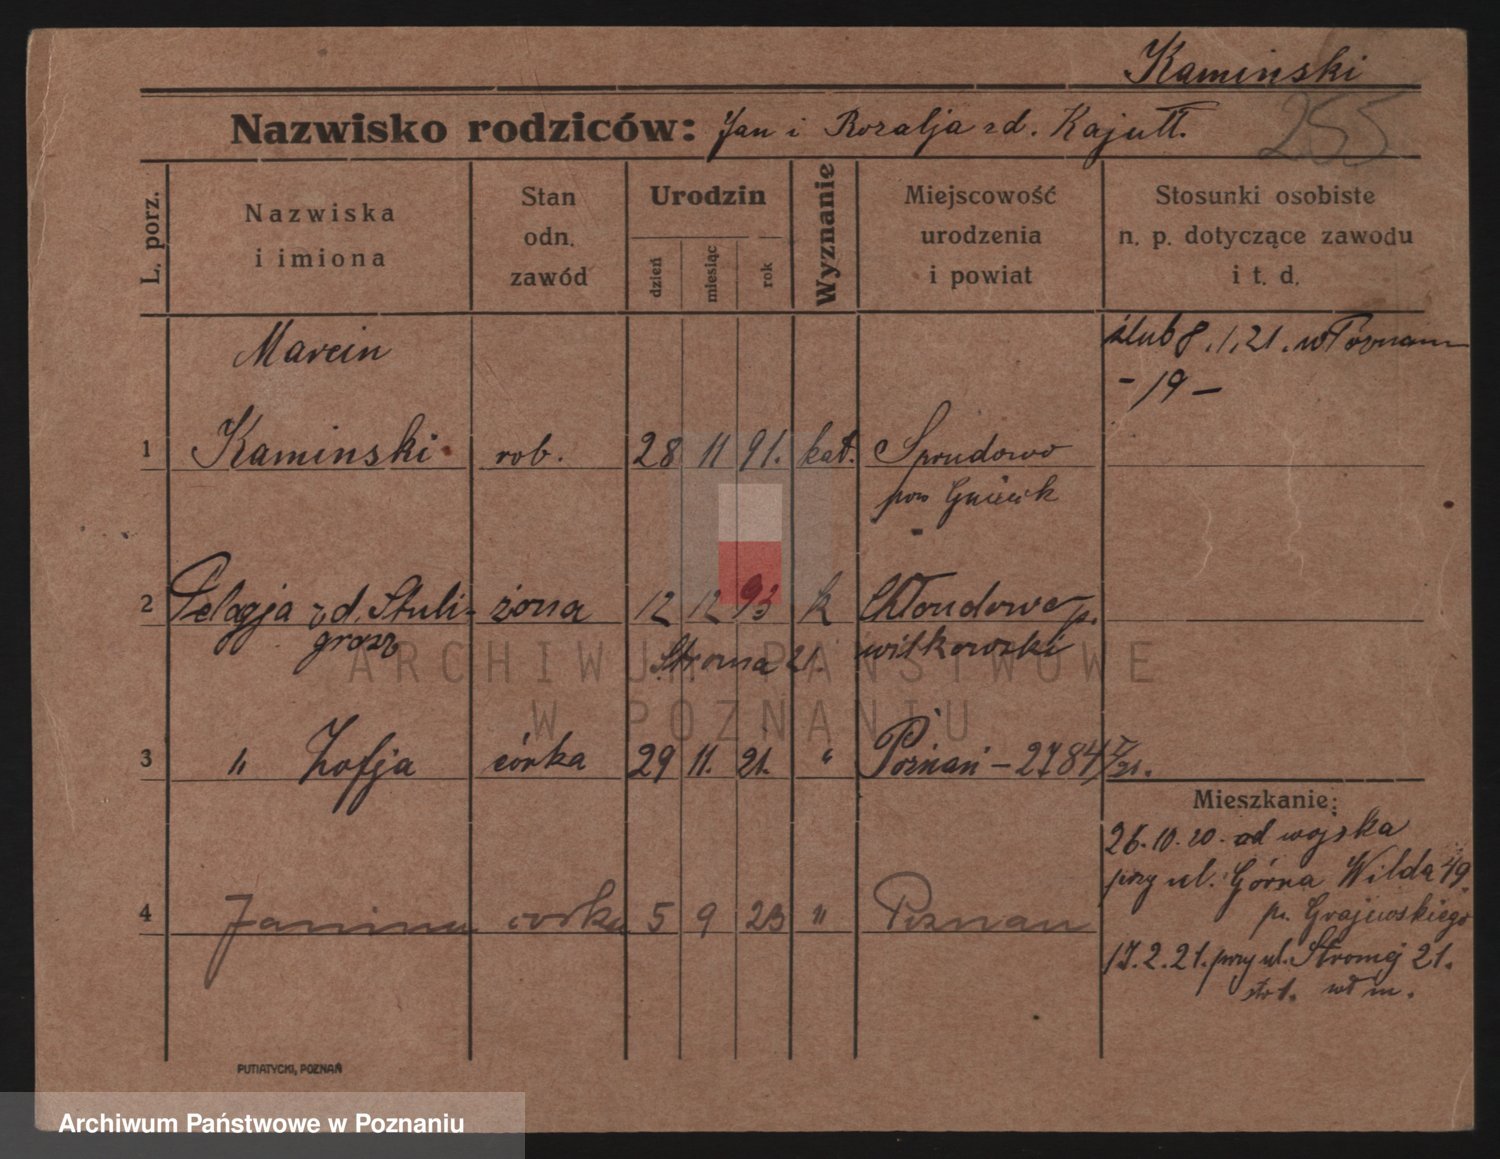 Kaminski
255
Nazwisko rodziców: Jan i Rozalja zd. Kajutt.
L. porz.
Nazwiska
i imiona
Stan
odn.
zawód
Urodzin
dzień
miesiąc
rok
Wyznanie
Miejscowość
urodzenia
i powiat
Stosunki osobiste
n. p. dotyczące zawodu
i t. d.
Marcin
ślub 8.1.21. w Poznaniu
- 19 -
1 Kaminski rob. 28 11 91. kat. Sprudowo
pow Gniewk
2 Pelagja zd. Stuli- żona 12 12 93 k Chłondowo p.
grosz Stroma 21. witkowski
ARCHIWUM PAŃSTWOWE
W POZNANIU
3 " Zofja córka 29 11. 21. " Poznań - 2784/21.
Mieszkanie:
26.10.20. od wojska
przy ul. Górna Wilda 49.
p. Grajewskiego
4 Janina córka 5 9 23 " Poznań
17.2.21. przy ul. Stromej 21.
wł m.
PUTIATYCKI, POZNAŃ
Archiwum Państwowe w Poznaniu